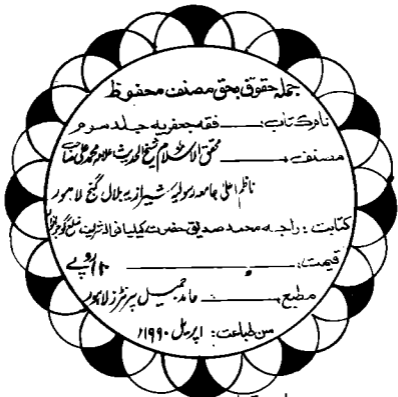 جملہ حقوق بحق مصنف محفوظ
نام کتاب: فقہ جعفریہ جلد سوم
مصنف: محقق الاسلام شیخ الحدیث علامہ محمد علی صاحب
ناظم اعلیٰ جامعہ رسولیہ شیرازیہ بلال گنج لاہور
کتابت: راجہ محمد صدیق حضرت کیلیانوالہ شریف ضلع گوجرانوالہ
قیمت: روپے
مطبع: حامد جمیل پرنٹرز لاہور
سن طباعت: اپریل ۱۹۹۰ء